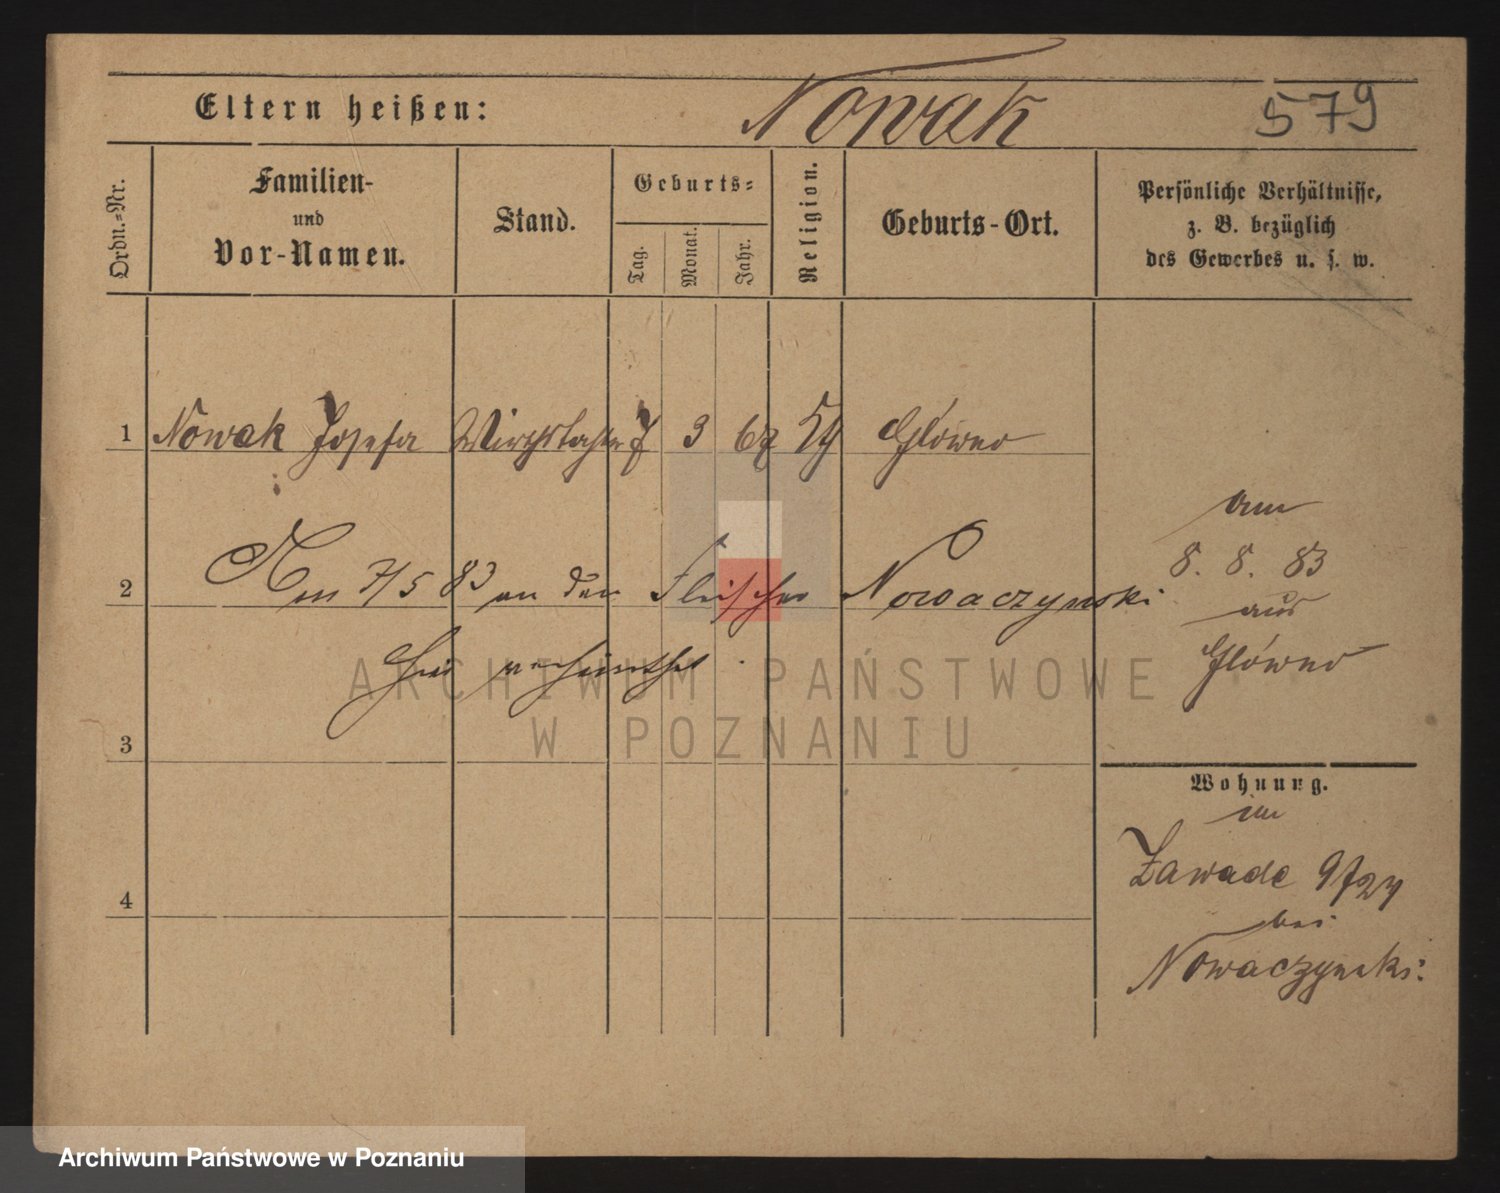 Eltern heißen: Nowak 579
Ordn.=Nr.
Familien-
und
Vor-Namen.
Stand.
Geburts=
Tag.
Monat.
Jahr.
Religion.
Geburts-Ort.
Persönliche Verhältnisse,
z. B. bezüglich
des Gewerbes u. s. w.
1 Nowak Josefa 7 3 Główno
am
8. 8. 83
aus
Główno
2 Am 7/5 83 an den Fleischer Nowaczynski
hier
3
4
Wohnung.
im
Zawade 9/24
bei
Nowaczynski
ARCHIWUM PAŃSTWOWE
W POZNANIU
Archiwum Państwowe w Poznaniu